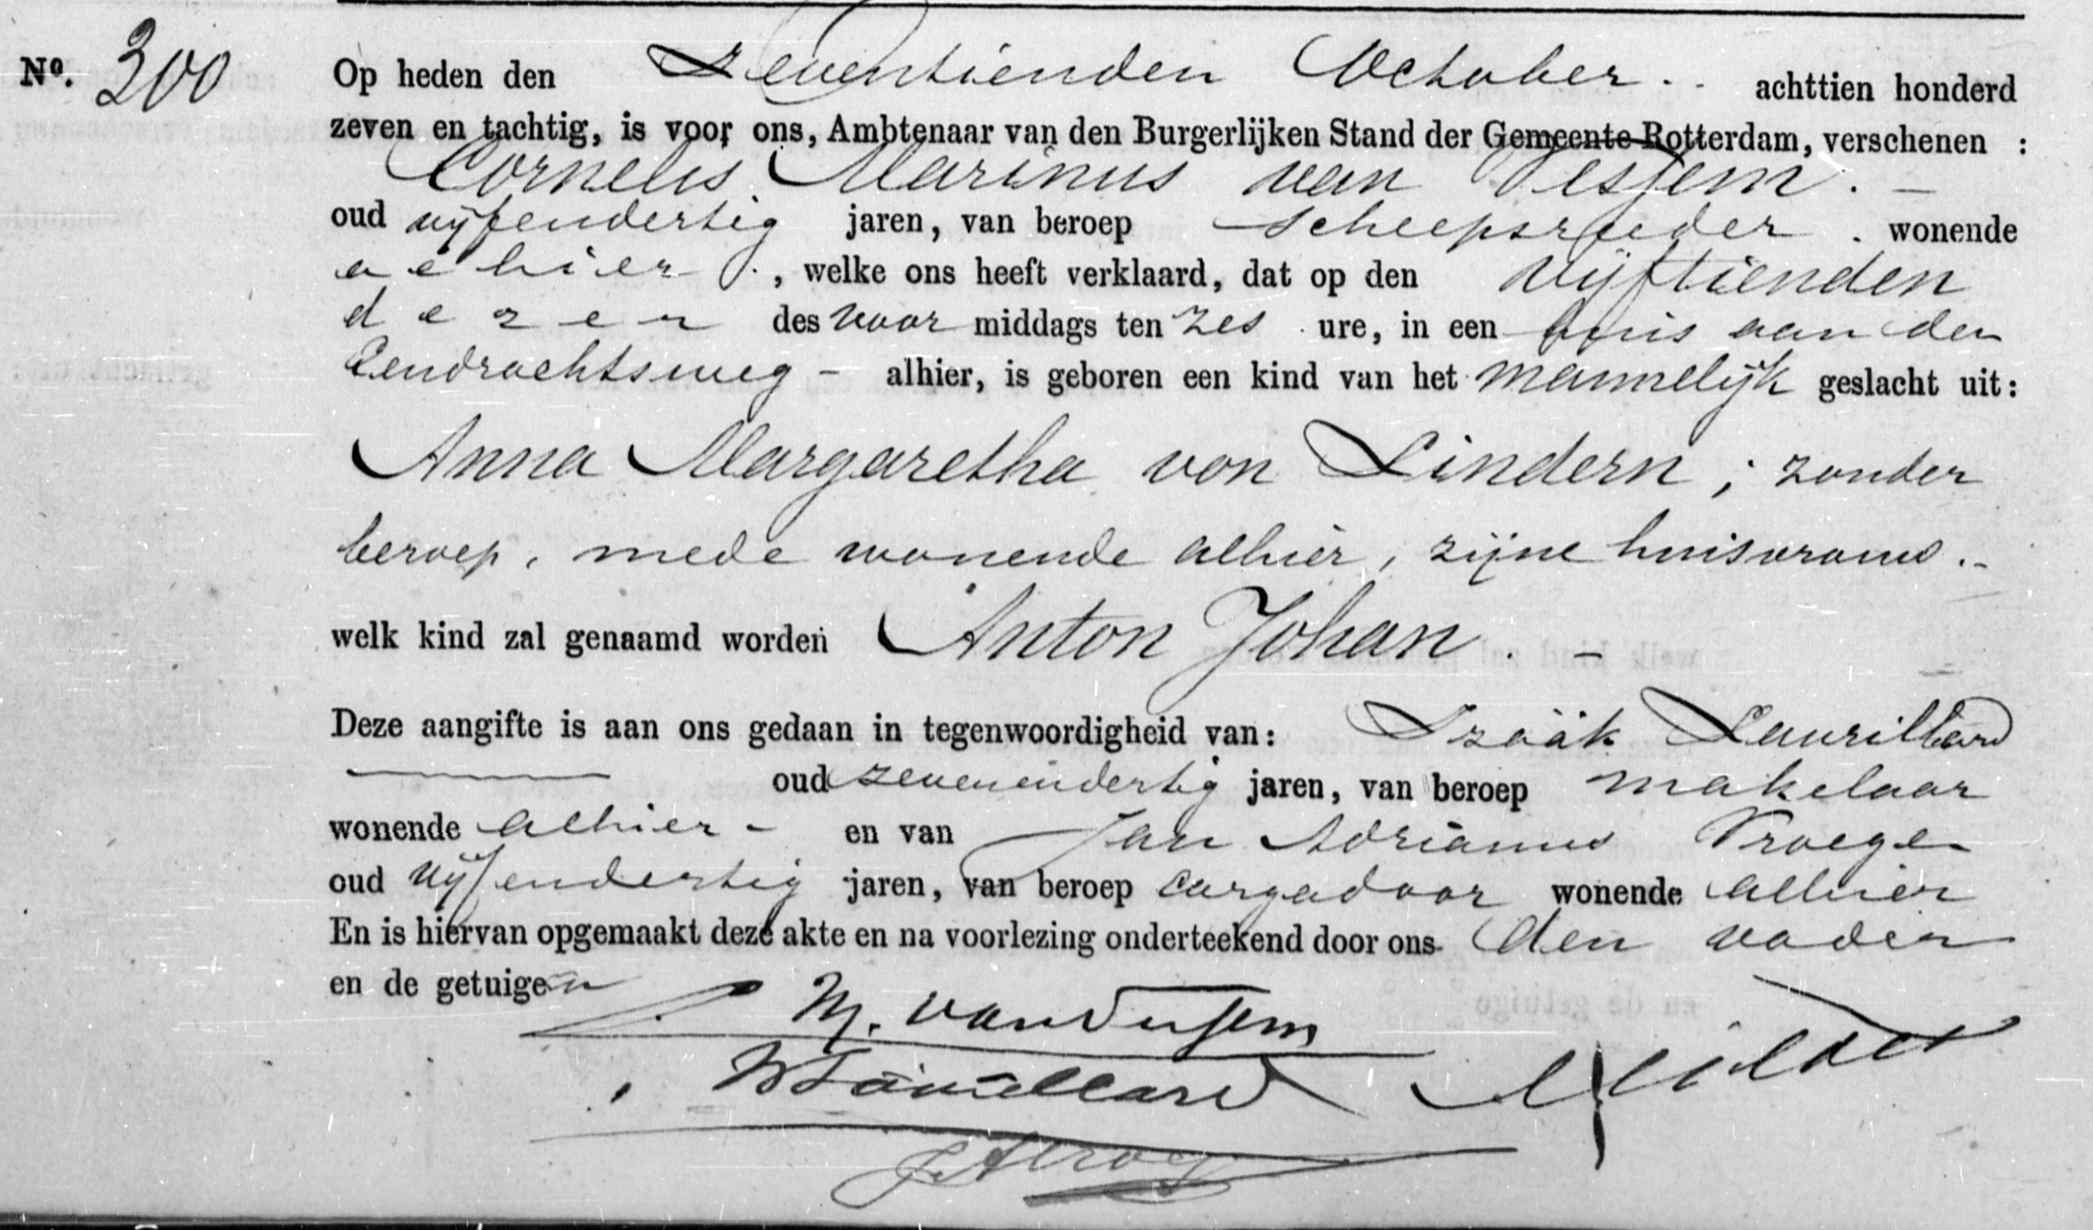 No. 300 Op heden den Zeventienden October achttien honderd
zeven en tachtig, is voor ons, Ambtenaar van den Burgerlijken Stand der Gemeente Rotterdam, verschenen :
Cornelis Marinus van Vessem. –
oud vijfendertig jaren, van beroep scheepsreeder . wonende
alhier , welke ons heeft verklaard, dat op den vijftienden
dezer des voor middags ten zes ure, in een huis aan den
Eendrachtsweg – alhier, is geboren een kind van het mannelijk geslacht uit:
Anna Margaretha von Lindern ; zonder
beroep, mede wonende alhier, zijne huisvrouw.–
welk kind zal genaamd worden Anton Johan . –
Deze aangifte is aan ons gedaan in tegenwoordigheid van: Izaäk Laurillard
oud zevenendertig jaren, van beroep makelaar
wonende alhier – en van Jan Adrianus Vroege
oud vijfendertig jaren, van beroep cargadoor wonende alhier
En is hiervan opgemaakt deze akte en na voorlezing onderteekend door ons den vader
en de getuigen
M. van Vessem
Laurillard